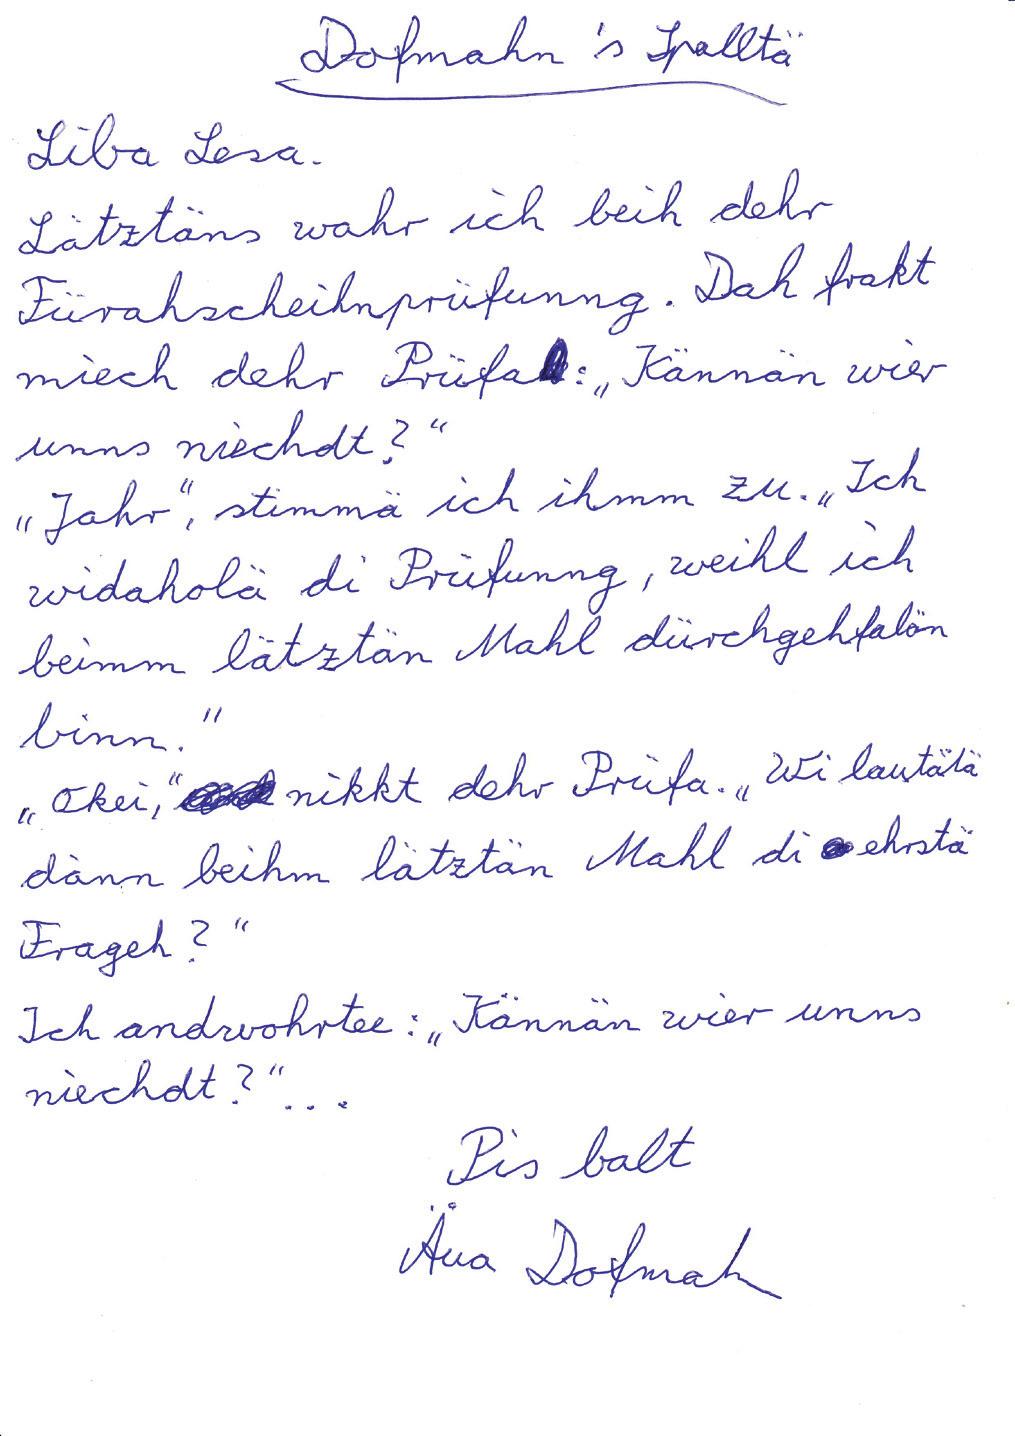 Dofmahn's Spalltä
Liba Lesa.
Lätztäns wahr ich beih dehr
Fürahscheihnprüfunng. Dah frakt
miech dehr Prüfa:„Kännän wier
unns niechdt?“
„Jahr“, stimmä ich ihmm zu.„Ich
widaholä di Prüfunng, weihl ich
beimm lätztän Mahl dürchgehfalön
binn.“
„Okei,“ nikkt dehr Prüfa.„Wi lautätä
dänn beihm lätztän Mahl di ehrstä
Frageh?“
Ich andwohrtee:„Kännän wier unns
niechdt?“...
Pis balt
Äua Dofmah